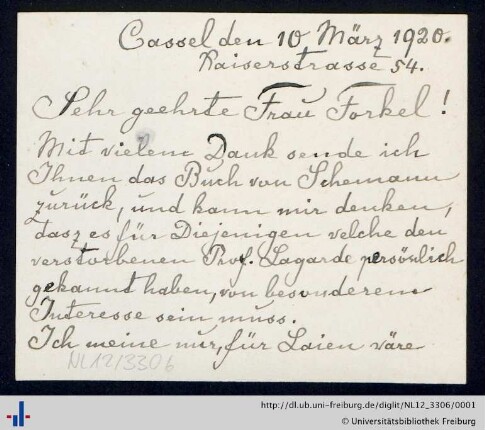 Cassel den 10 März 1920.
Kaiserstrasse 54.
Sehr geehrte Frau Forkel!
Mit vielem Dank sende ich
Ihnen das Buch von Schemann
zurück, und kann mir denken,
dasz es für Diejenigen welche den
verstorbenen Prof. Lagarde persönlich
gekannt haben, von besonderem
Interesse sein muss.
Ich meine nur, für Laien wäre
NL12/3306
http://dl.ub.uni-freiburg.de/diglit/NL12_3306/0001
© Universitätsbibliothek Freiburg